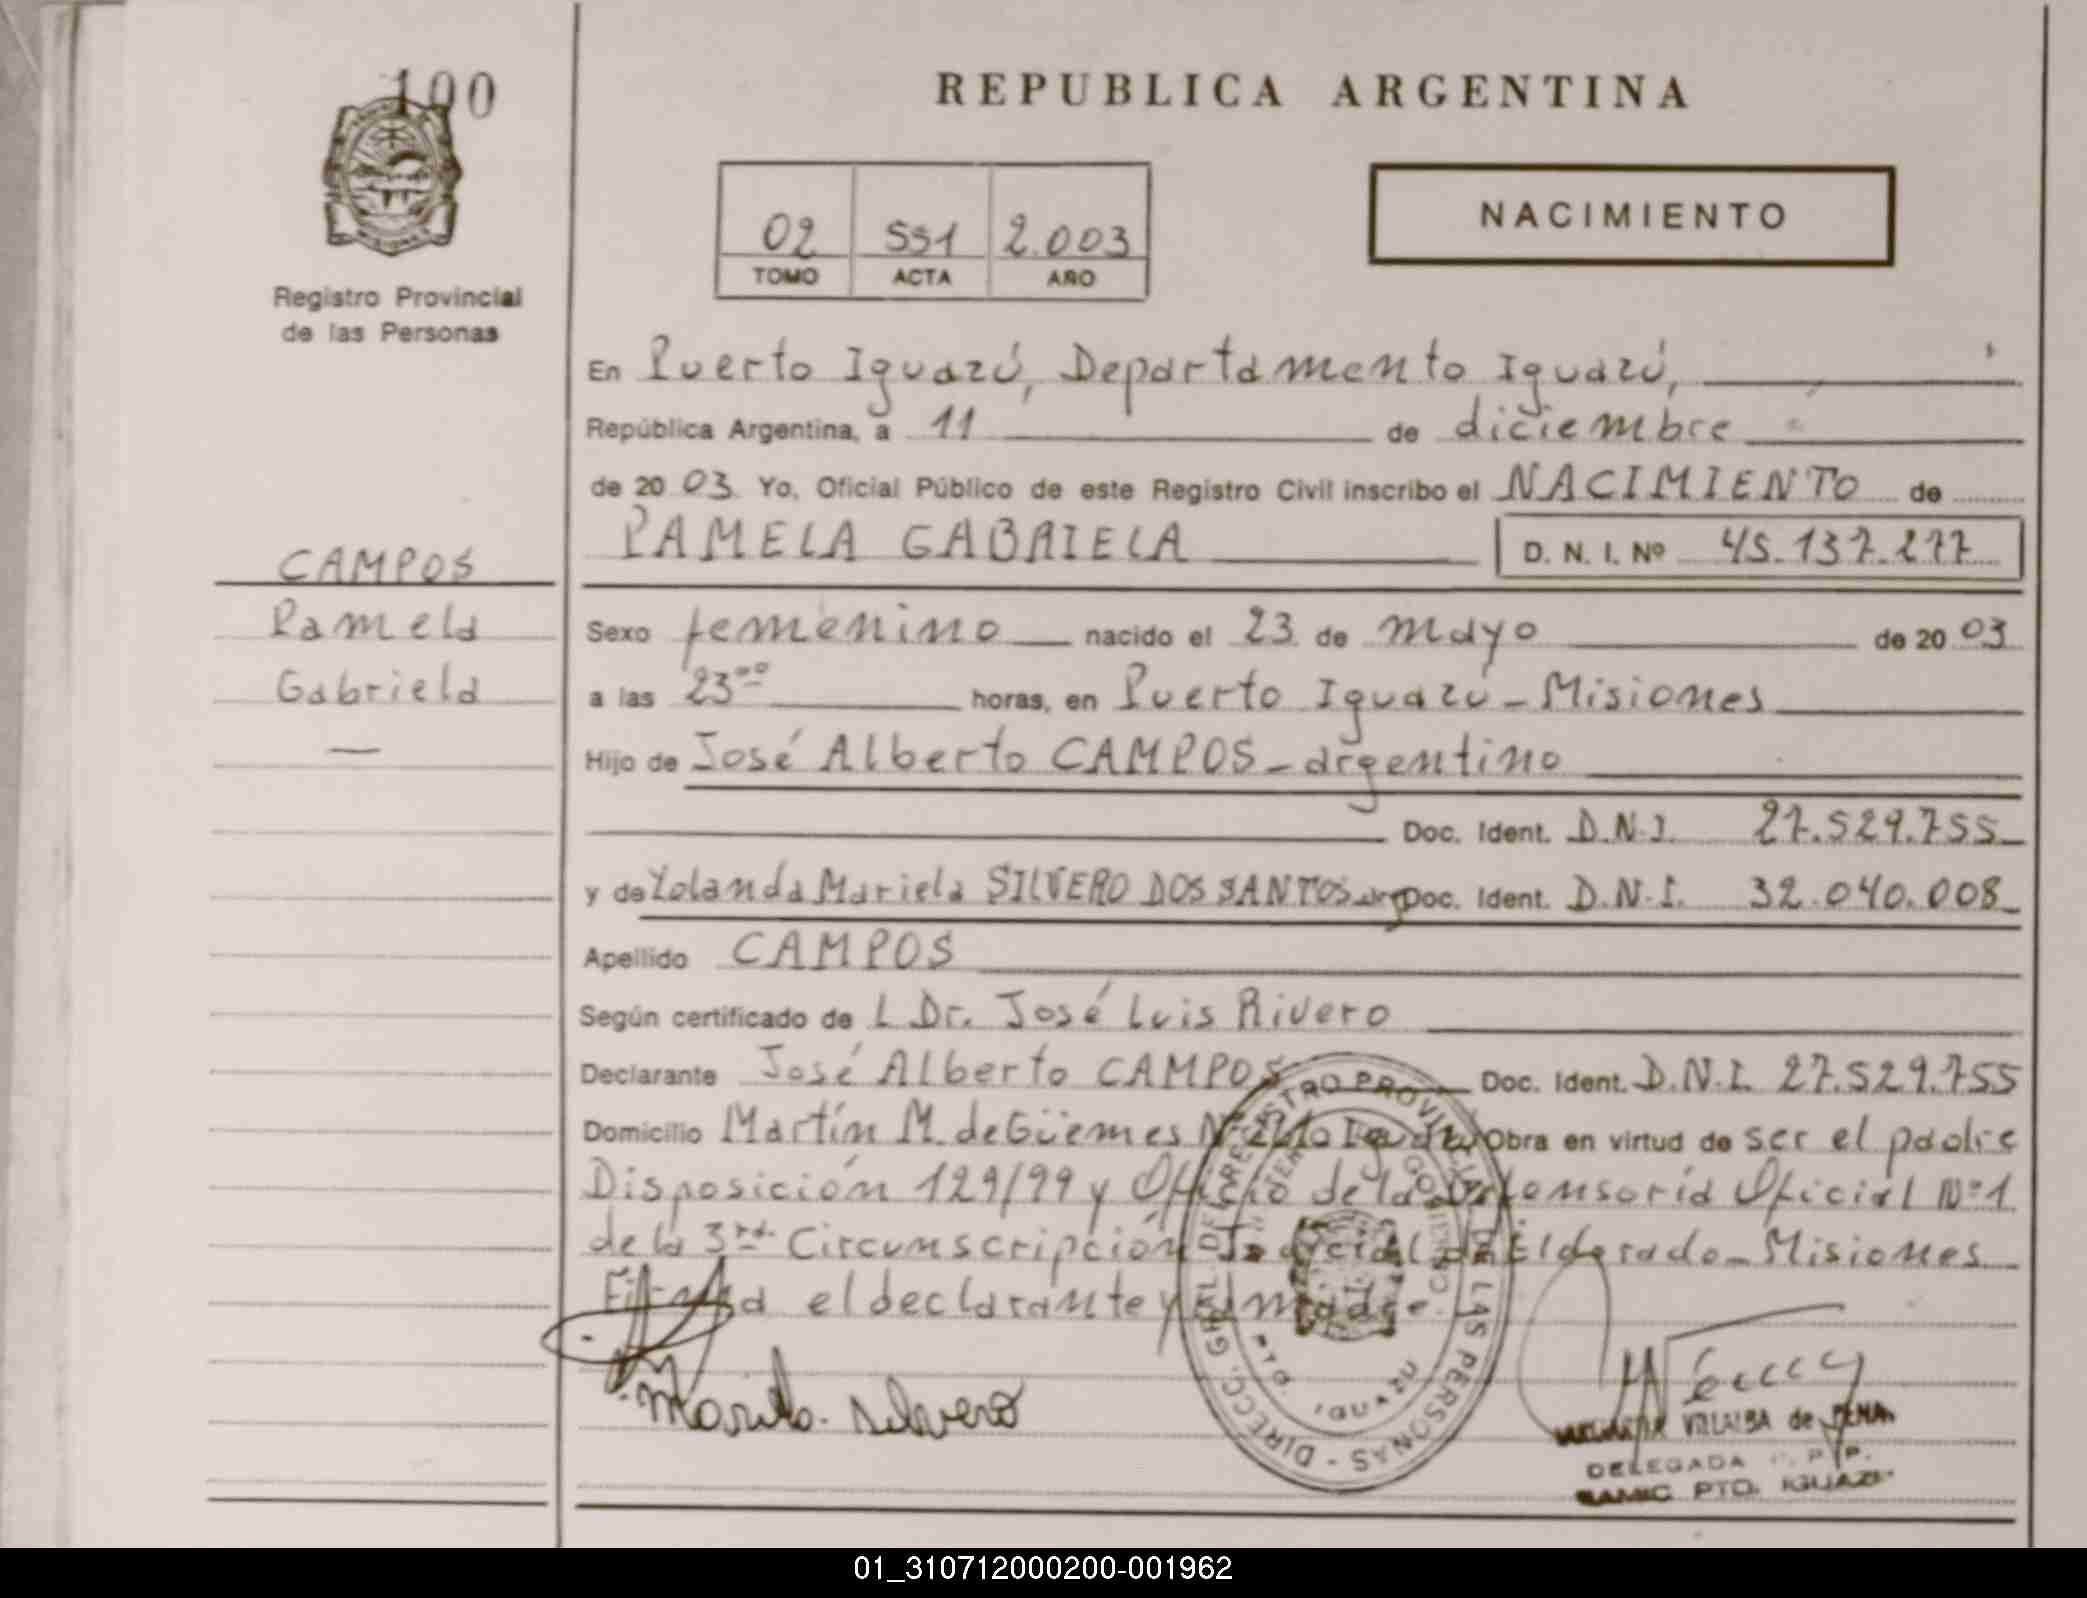 100
REPUBLICA ARGENTINA
NACIMIENTO
02 551 2.003
TOMO ACTA AÑO
Registro Provincial
de las Personas
En Puerto Iguazú, Departamento Iguazú,
República Argentina, a 11 de diciembre
de 20 03 Yo, Oficial Público de este Registro Civil inscribo el NACIMIENTO de
PAMELA GABRIELA D. N. I. Nº 45.137.277
CAMPOS
Pamela
Gabriela
—
Sexo femenino nacido el 23 de mayo de 20 03
a las 23ºº horas, en Puerto Iguazú - Misiones
Hijo de José Alberto CAMPOS - argentino
Doc. Ident. D.N.I. 27.529.755
y de Yolanda Mariela SILVERO DOS SANTOS - arg Doc. Ident. D.N.I. 32.040.008
Apellido CAMPOS
Según certificado de L Dr. José Luis Rivero
Declarante José Alberto CAMPOS Doc. Ident. D.N.I. 27.529.755
Domicilio Martín M. de Güemes Obra en virtud de ser el padre
Disposición 129/99 y Oficio de la Defensoría Oficial Nº 1
de la 3ra. Circunscripción Judicial de Eldorado - Misiones
Firma el declarante y la madre.
Mariela Silvero
DIRECC. GRAL. DEL REGISTRO PROVINCIAL DE LAS PERSONAS
PTO. IGUAZU
VILLALBA de PENA
DELEGADA R. P. P.
SAMIC PTO. IGUAZU
01_310712000200-001962